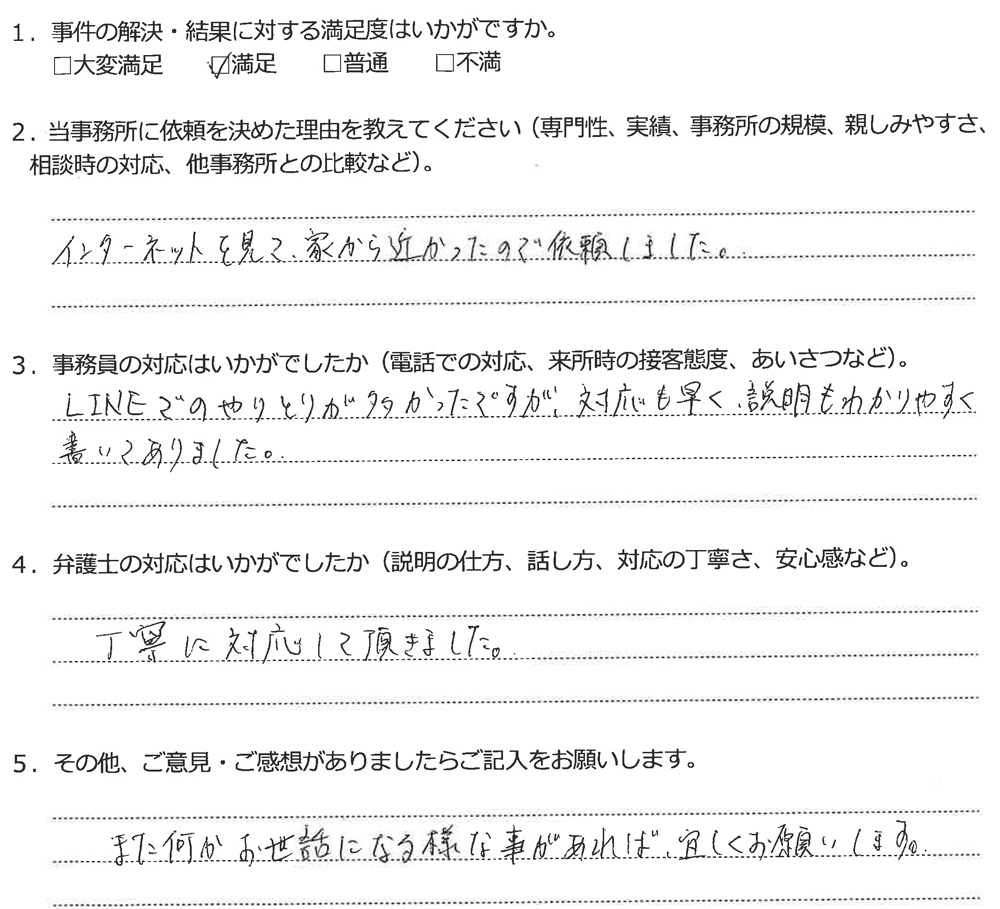 1．事件の解決・結果に対する満足度はいかがですか。
□大変満足　☑満足　□普通　□不満
2．当事務所に依頼を決めた理由を教えてください（専門性、実績、事務所の規模、親しみやすさ、
相談時の対応、他事務所との比較など）。
インターネットを見て、家から近かったので依頼しました。
3．事務員の対応はいかがでしたか（電話での対応、来所時の接客態度、あいさつなど）。
LINEでのやりとりが多かったですが、対応も早く、説明もわかりやすく
書いてありました。
4．弁護士の対応はいかがでしたか（説明の仕方、話し方、対応の丁寧さ、安心感など）。
丁寧に対応して頂きました。
5．その他、ご意見・ご感想がありましたらご記入をお願いします。
また何かお世話になる様な事があれば、宜しくお願いします。